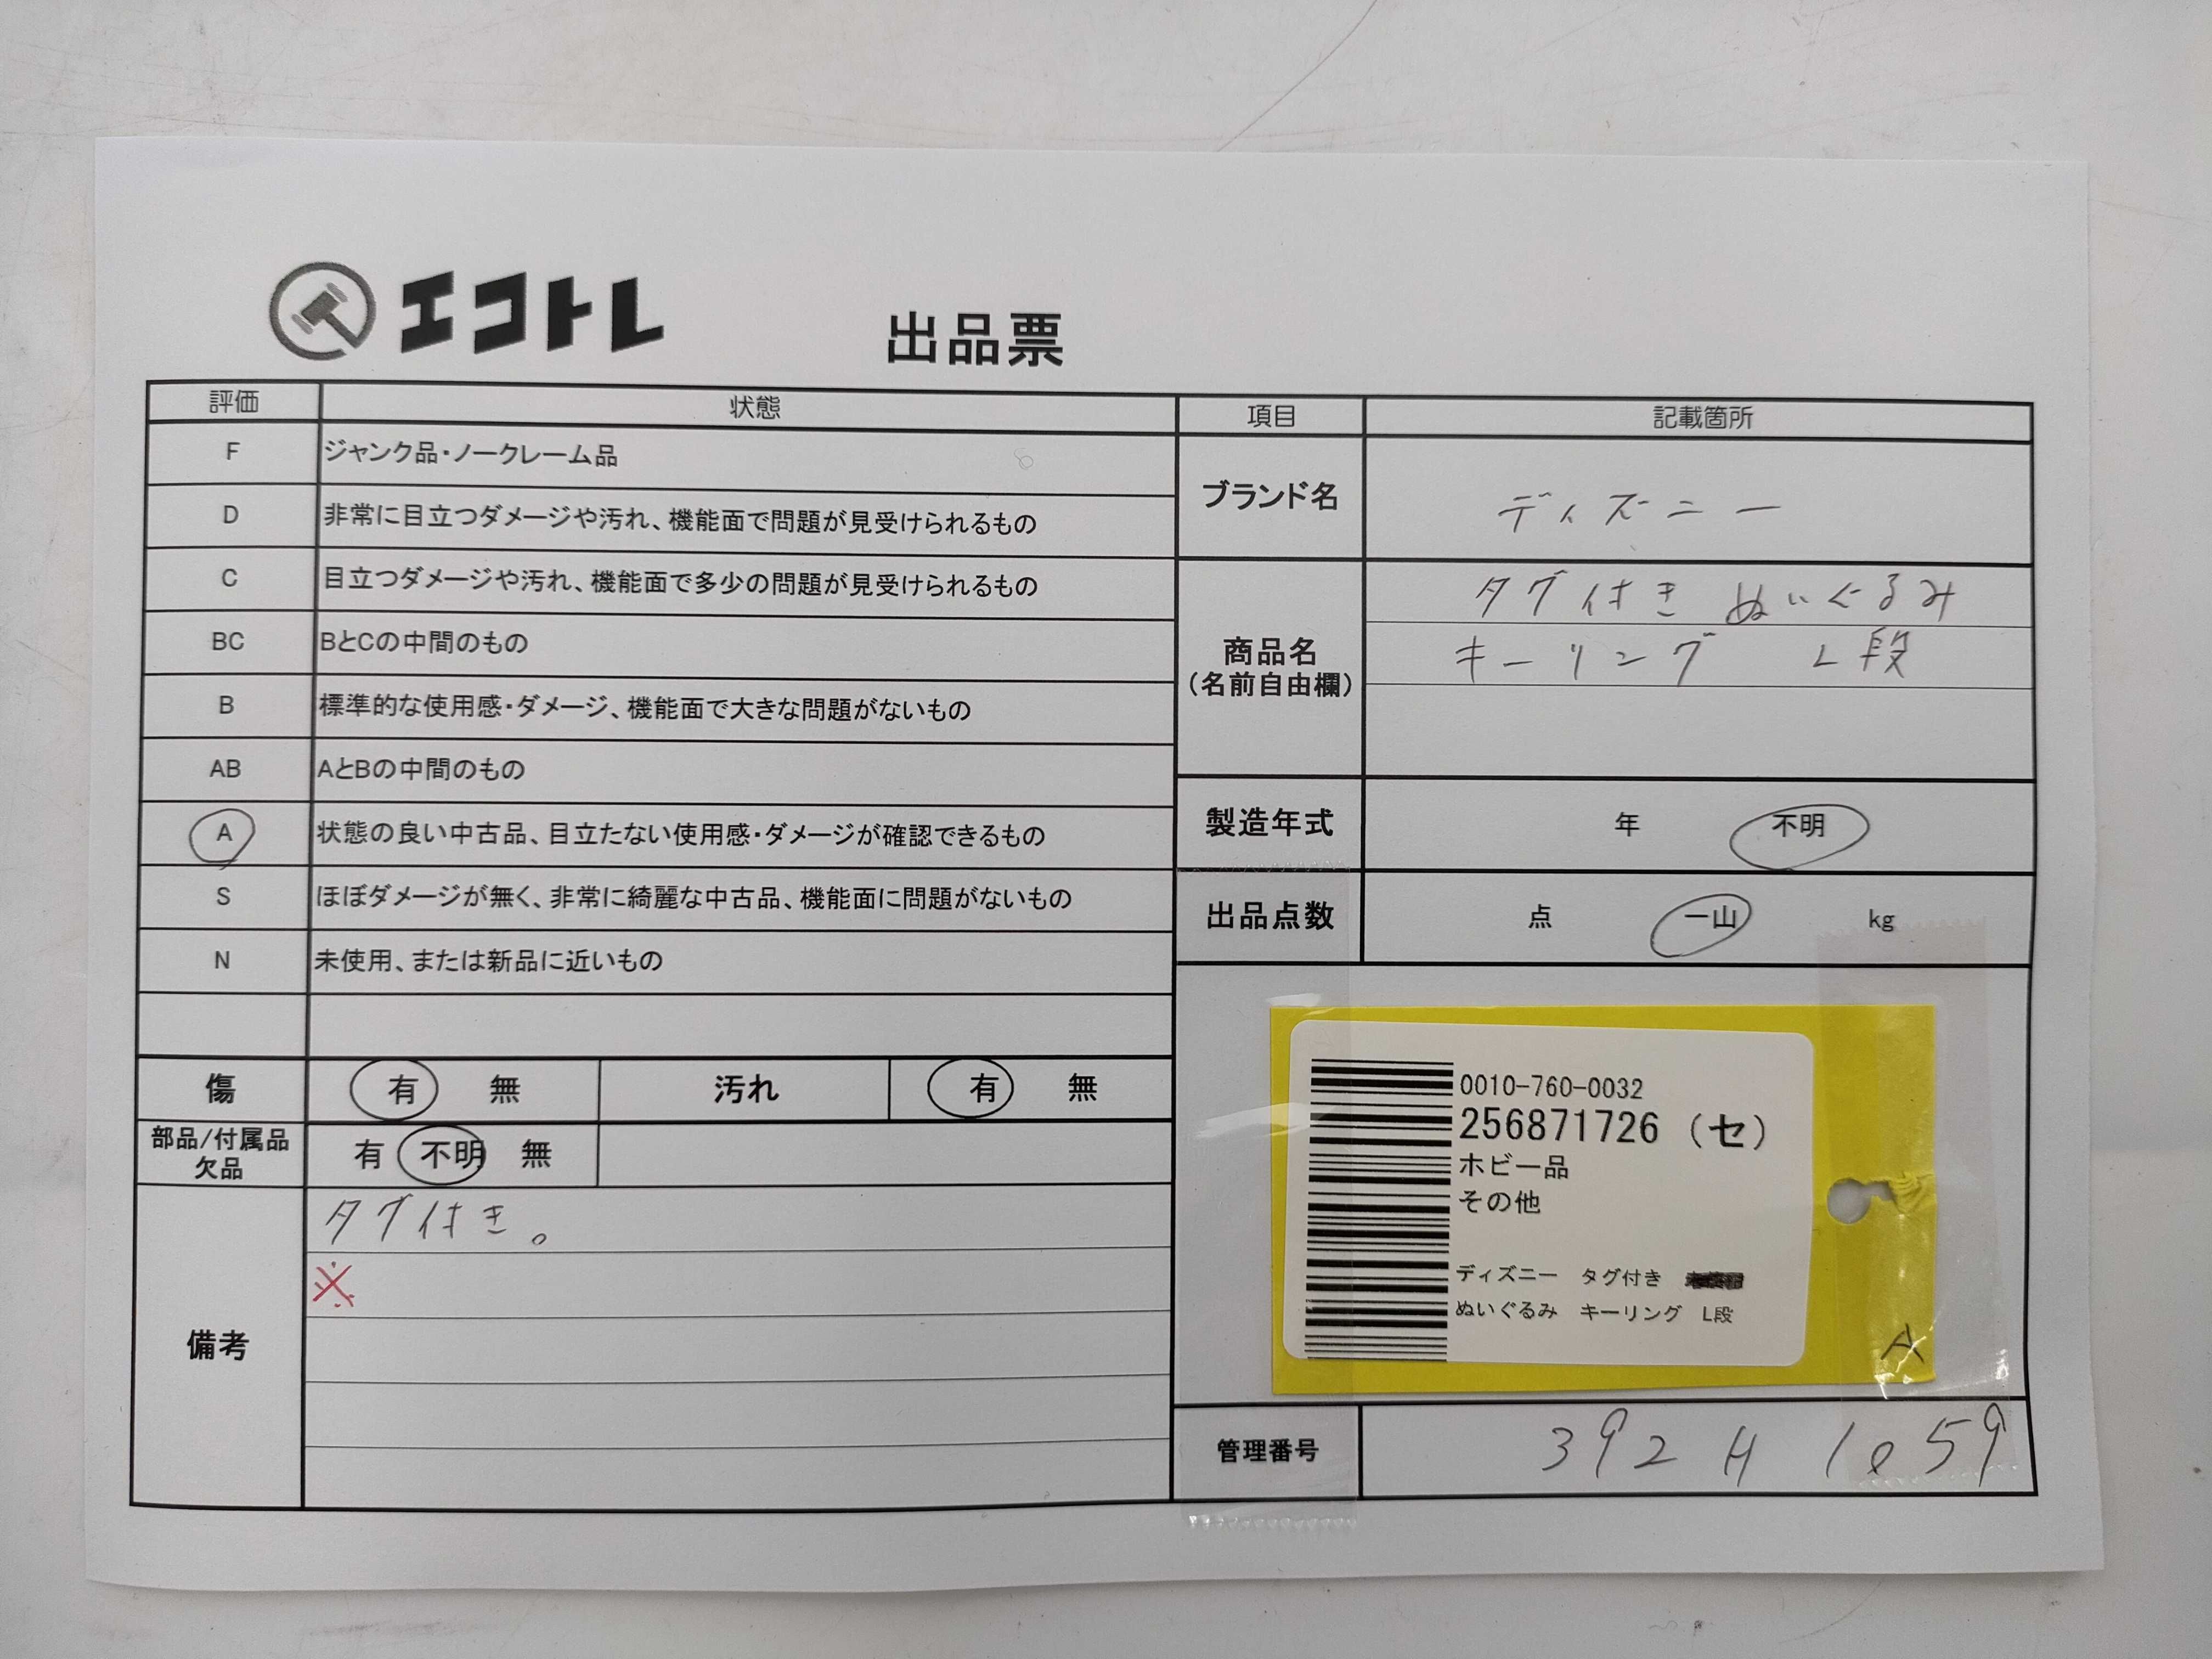 エコトレ
出品票
評価 状態
F ジャンク品・ノークレーム品
D 非常に目立つダメージや汚れ、機能面で問題が見受けられるもの
C 目立つダメージや汚れ、機能面で多少の問題が見受けられるもの
BC BとCの中間のもの
B 標準的な使用感・ダメージ、機能面で大きな問題がないもの
AB AとBの中間のもの
A 状態の良い中古品、目立たない使用感・ダメージが確認できるもの
S ほぼダメージが無く、非常に綺麗な中古品、機能面に問題がないもの
N 未使用、または新品に近いもの
傷 有 無 汚れ 有 無
部品/付属品
欠品 有 不明 無
備考
タグ付き。
※
項目 記載箇所
ブランド名 ディズニー
商品名
(名前自由欄)
タグ付き ぬいぐるみ
キーリング L段
製造年式 年 不明
出品点数 点 一山 kg
0010-760-0032
256871726 (セ)
ホビー品
その他
ディズニー タグ付き
ぬいぐるみ キーリング L段
A
管理番号 392 H 1059